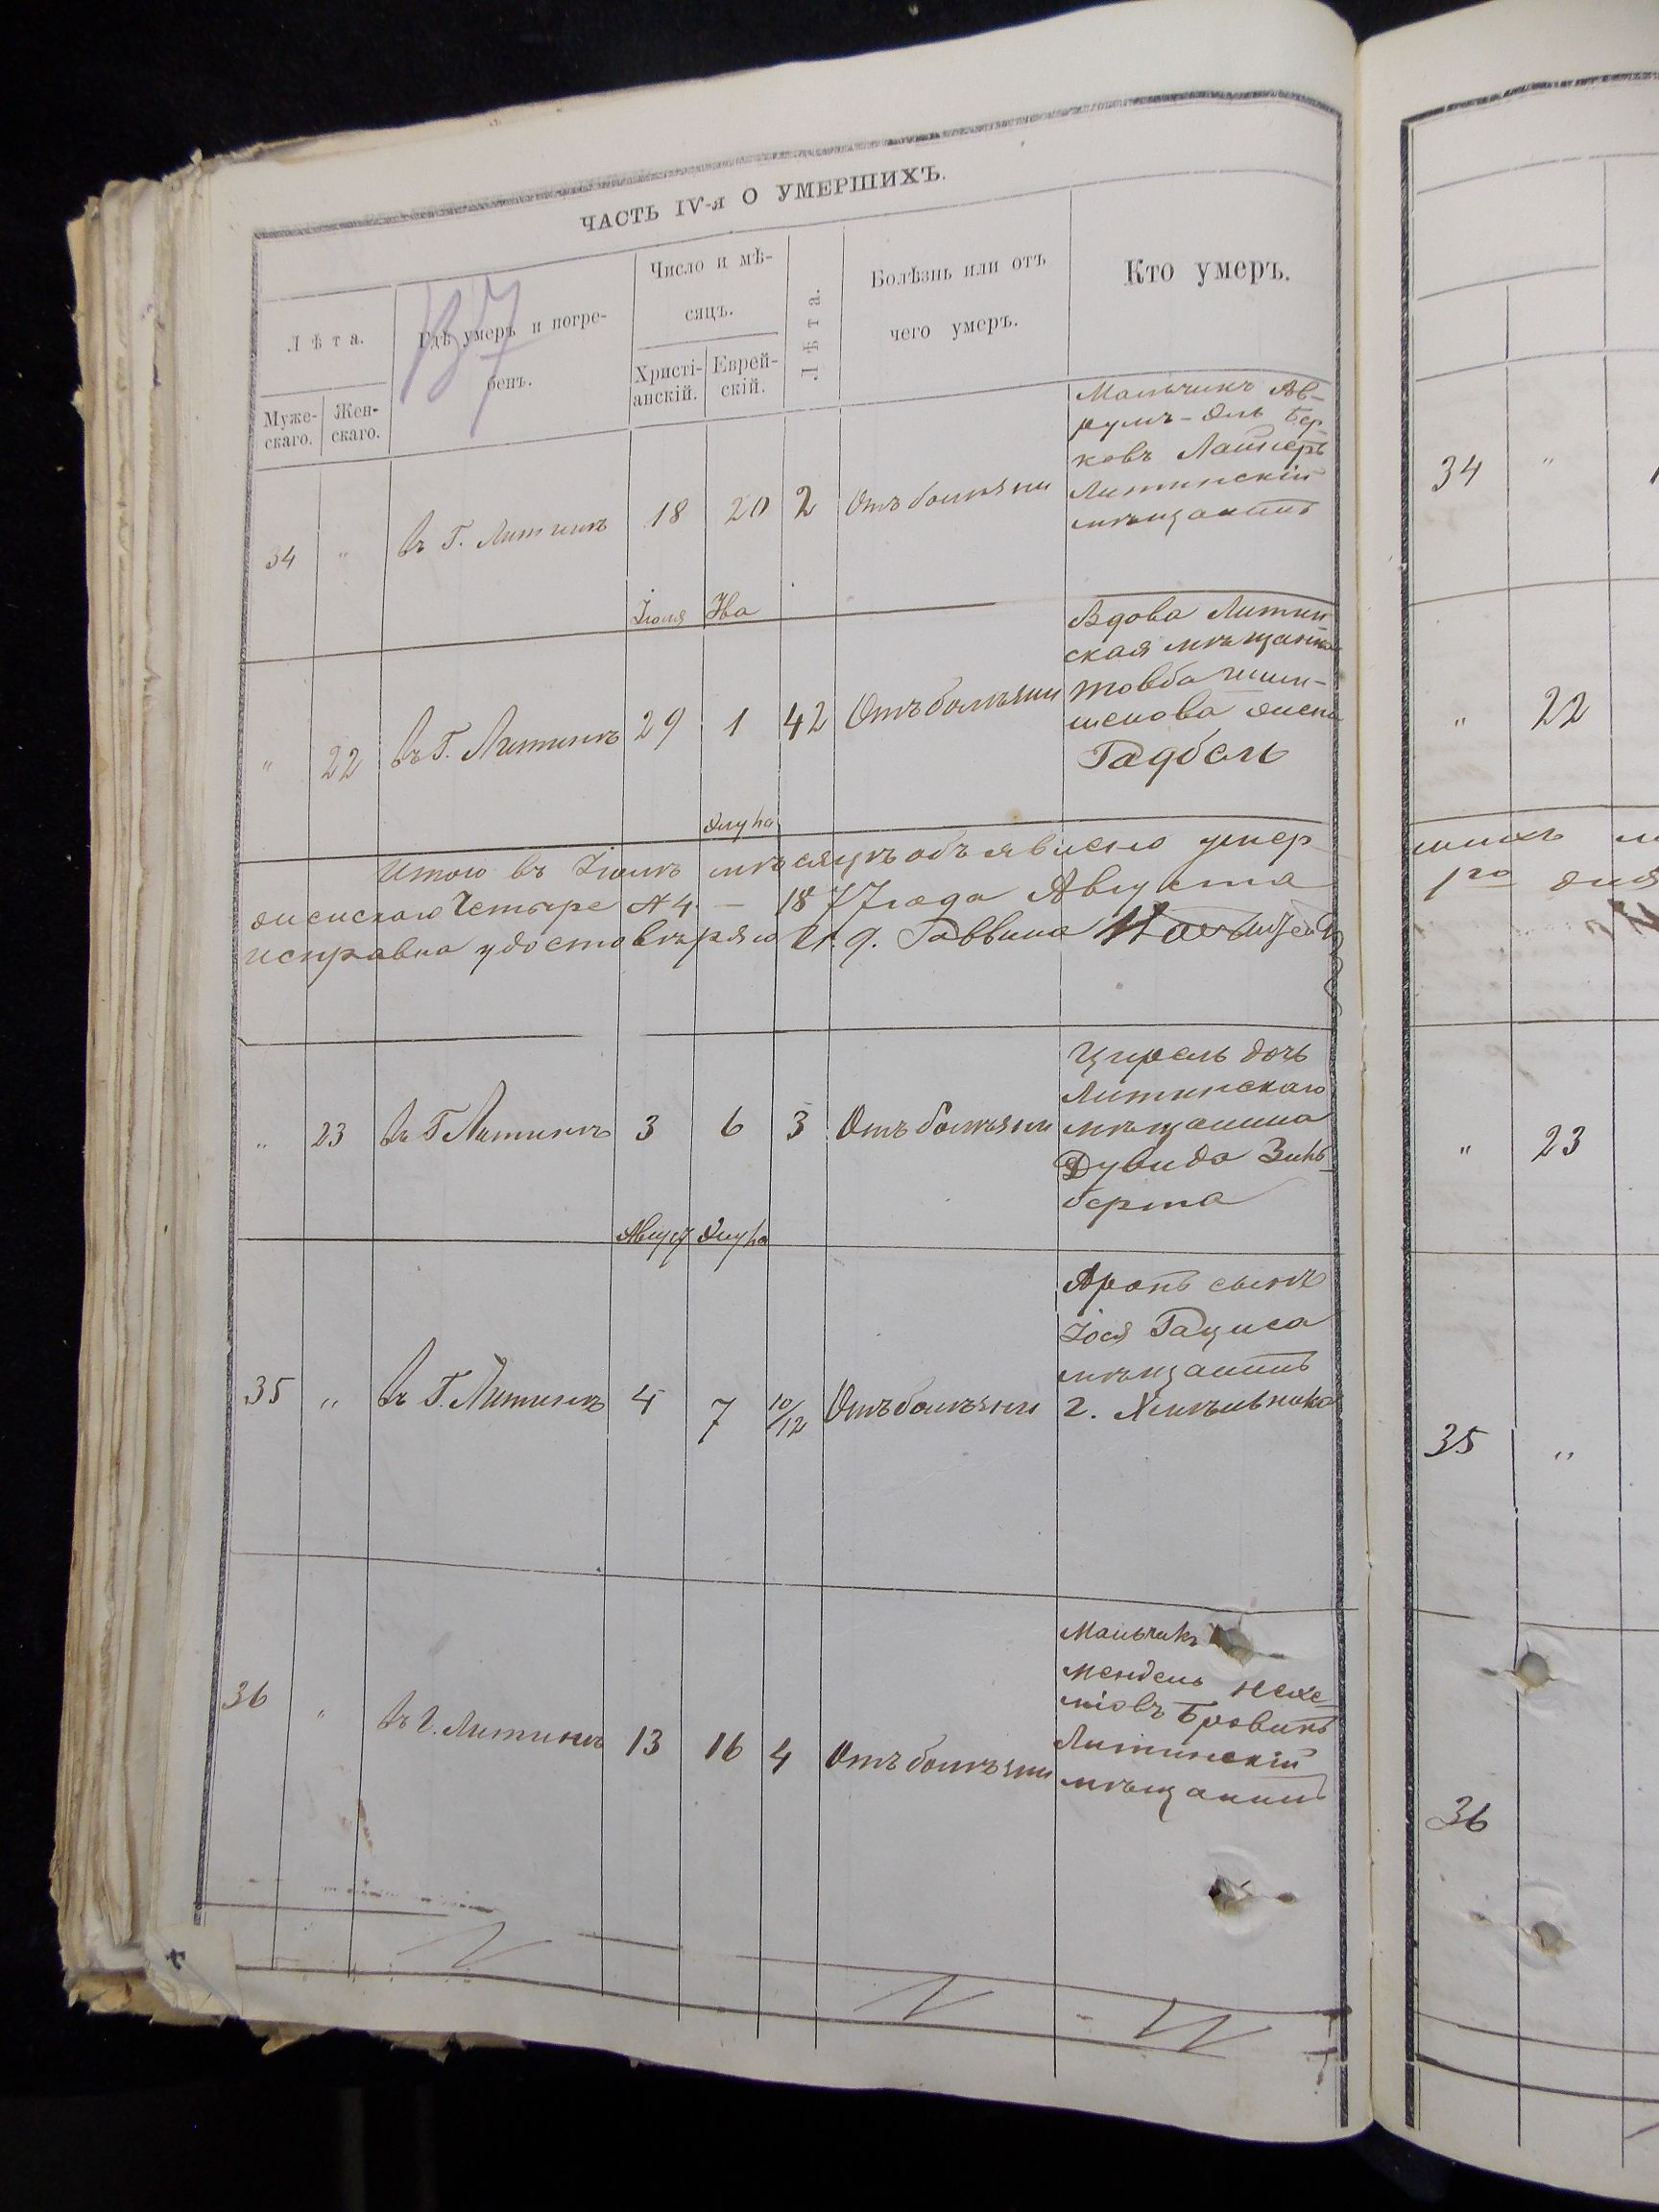 ЧАСТЬ IV-я О УМЕРШИХЪ.
Лѣта.
Муже-
скаго.
Жен-
скаго.
Гдѣ умеръ и погре-
бенъ.
Число и мѣ-
сяцъ.
Христі-
анскій.
Еврей-
скій.
Лѣта.
Болѣзнь или отъ
чего умеръ.
Кто умеръ.
34 " въ Г. Литинѣ 18 20 2 Отъ болѣзни
Іюля Ава
Мальчикъ Ав-
румъ-Эль Бер-
ковъ
Литинскій
мѣщанинъ
" 22 въ Г. Литинѣ 29 1 42 Отъ болѣзни
Элула
Вдова Литин-
ская мѣщанка
Товба
Итого въ Іюлѣ мѣсяцѣ объявлено умер
женскаго Четыре № 4 — 1877 года Августа
исправна удостовѣряю И. д. Раввина
" 23 въ Г Литинѣ 3 6 3 Отъ болѣзни
Август Элула
Цирель дочь
Литинскаго
мѣщанина
Дувида Зиль-
берта
35 " въ Г. Литинѣ 4 7 10/12 Отъ болѣзни
Аронъ сынъ
Іося Рациса
мѣщанинъ
г. Хмѣльника
36 " въ г. Литинѣ 13 16 4 Отъ болѣзни
Мальчикъ
Мендель Нехе-
міовъ Бровинъ
Литинскій
мѣщанинъ
34 "
" 22
шихъ
1го дня
" 23
35 "
36